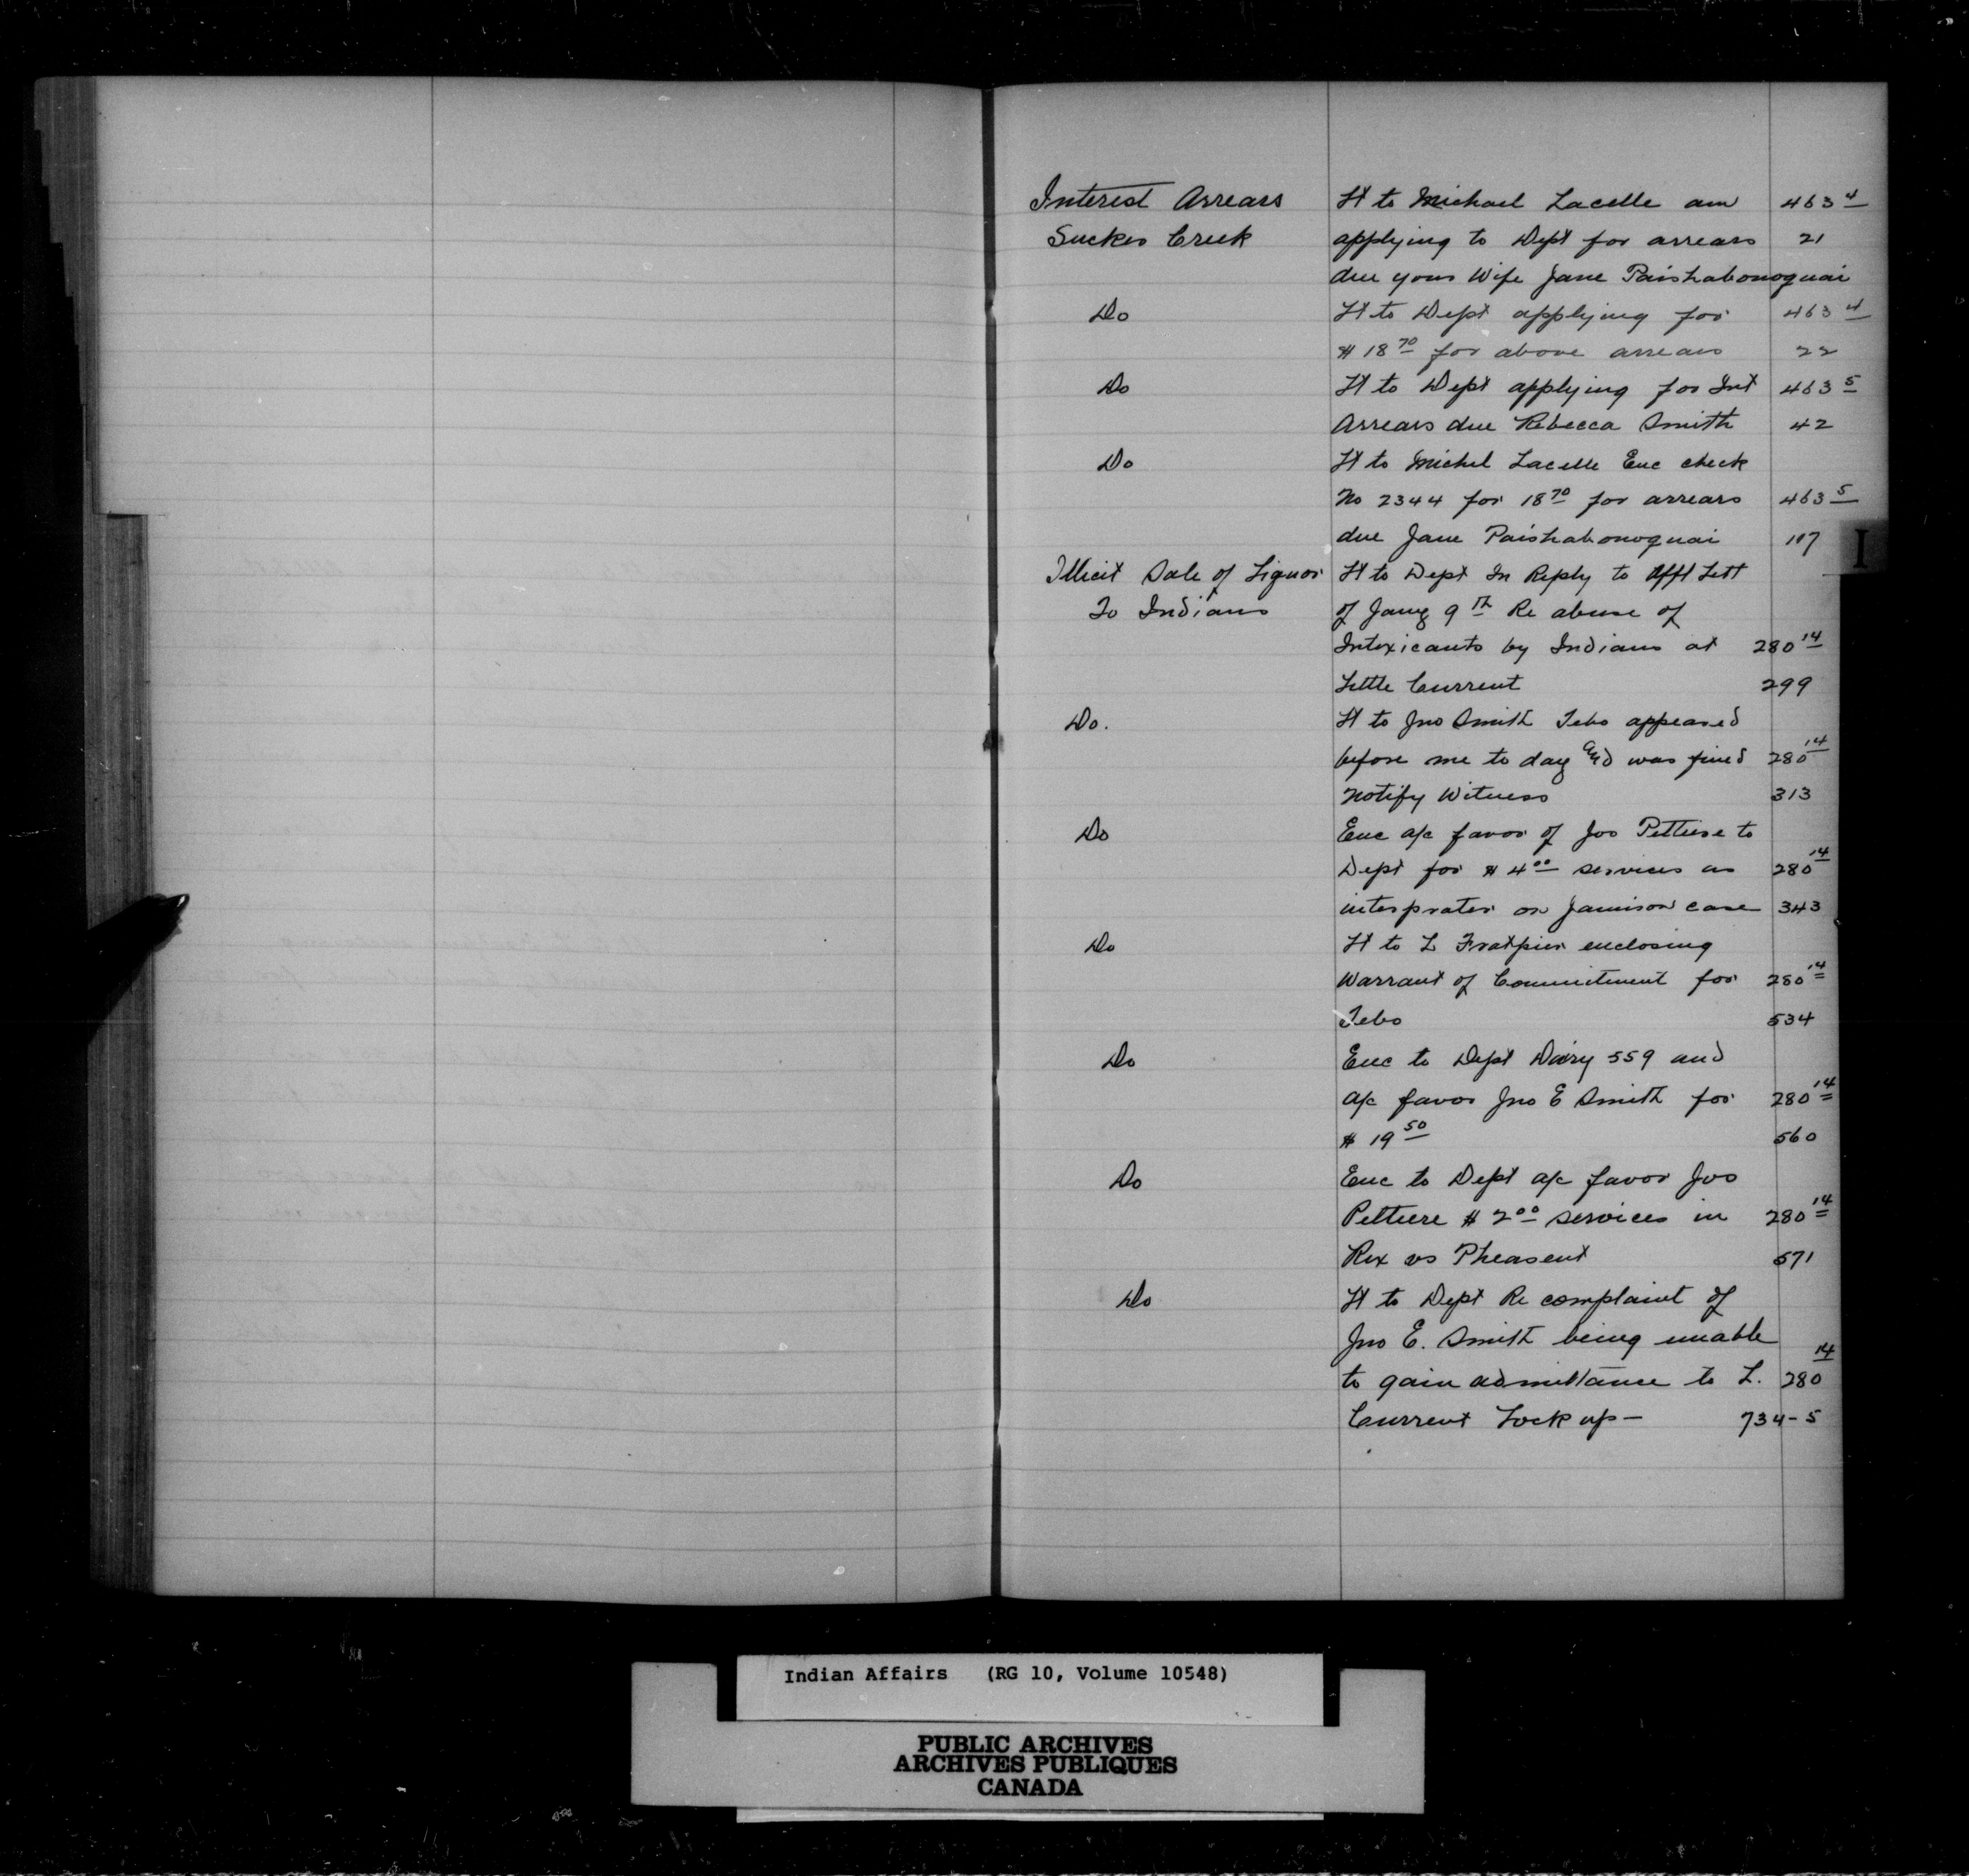 Interest Arrears Lt to Michael Lacelle am 463 4
Sucker Creek applying to Dept for arrears 21
due your Wife Jane Paishabonoquai
Do Lt to Dept applying for 463 4
$ 18 70 for above arrears 22
Do Lt to Dept applying for Int 463 5
Arrears due Rebecca Smith 42
Do Lt to Michel Lacelle Enc check
No 2344 for 18 70 for arrears 463 5
due Jane Paishabonoquai 107
I
Illicit Sale of Liquor Lt to Dept In Reply to Offl Lett
To Indians of Jany 9th Re abuse of
Intoxicants by Indians at 280 14
Little Current 299
Do. Lt to Jno Smith Tebo appeared
before me to day and was fined 280 14
Notify Witness 313
Do Enc a/c favor of Jos Pettiere to
Dept for $ 4 00 services as 280 14
interprater on Jamison case 343
Do Lt to L enclosing
Warrant of Commitment for 280 14
Tebo 534
Do Enc to Dept Dairy 559 and
a/c favor Jno E Smith for 280 14
$ 19 50 560
Do Enc to Dept a/c favor Jos
Peltiere $ 2 00 services in 280 14
Rex vs Pheasent 571
Do Lt to Dept Re complaint of
Jno E. Smith being unable
to gain admittance to L. 280 14
Current Lock up - 734-5
Indian Affairs (RG 10, Volume 10548)
PUBLIC ARCHIVES
ARCHIVES PUBLIQUES
CANADA